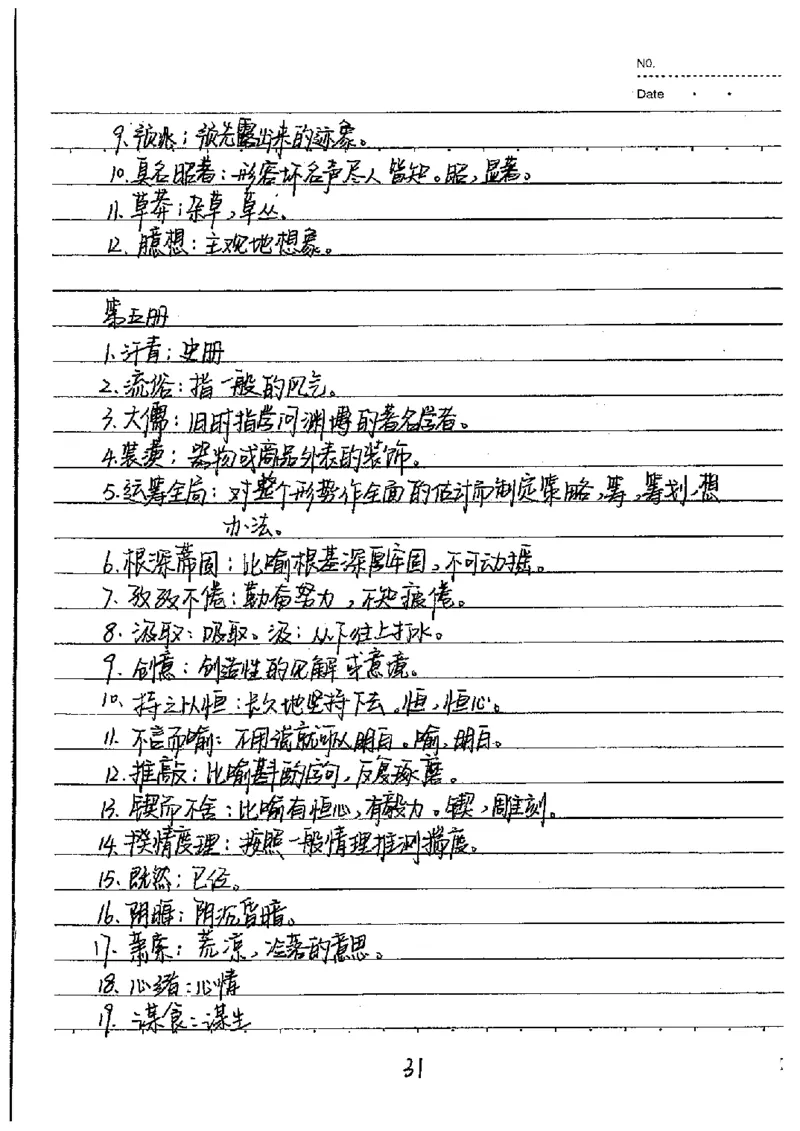 NO.
Date
9.预兆：预先露出来的迹象。
10.臭名昭著：形容坏名声尽人皆知。昭，显著。
11.草莽：杂草，草丛。
12.臆想：主观地想象。
第五册
1.汗青：史册
2.流俗：指一般的风气。
3.大儒：旧时指学问渊博的著名学者。
4.装潢：器物或商品外表的装饰。
5.运筹全局：对整个形势作全面的估计而制定策略，筹，筹划，想
办法。
6.根深蒂固：比喻根基深厚牢固，不可动摇。
7.孜孜不倦：勤奋努力，不知疲倦。
8.汲取：吸取。汲：从下往上打水。
9.创意：创造性的见解或意境。
10.持之以恒：长久地坚持下去。恒，恒心。
11.不言而喻：不用说就可以明白。喻，明白。
12.推敲：比喻斟酌字句，反复琢磨。
13.锲而不舍：比喻有恒心，有毅力。锲，雕刻。
14.揆情度理：按照一般情理推测揣度。
15.既然：已经。
16.阴晦：阴沉昏暗。
17.萧索：荒凉，冷落的意思。
18.心绪：心情
19.谋食：谋生
31